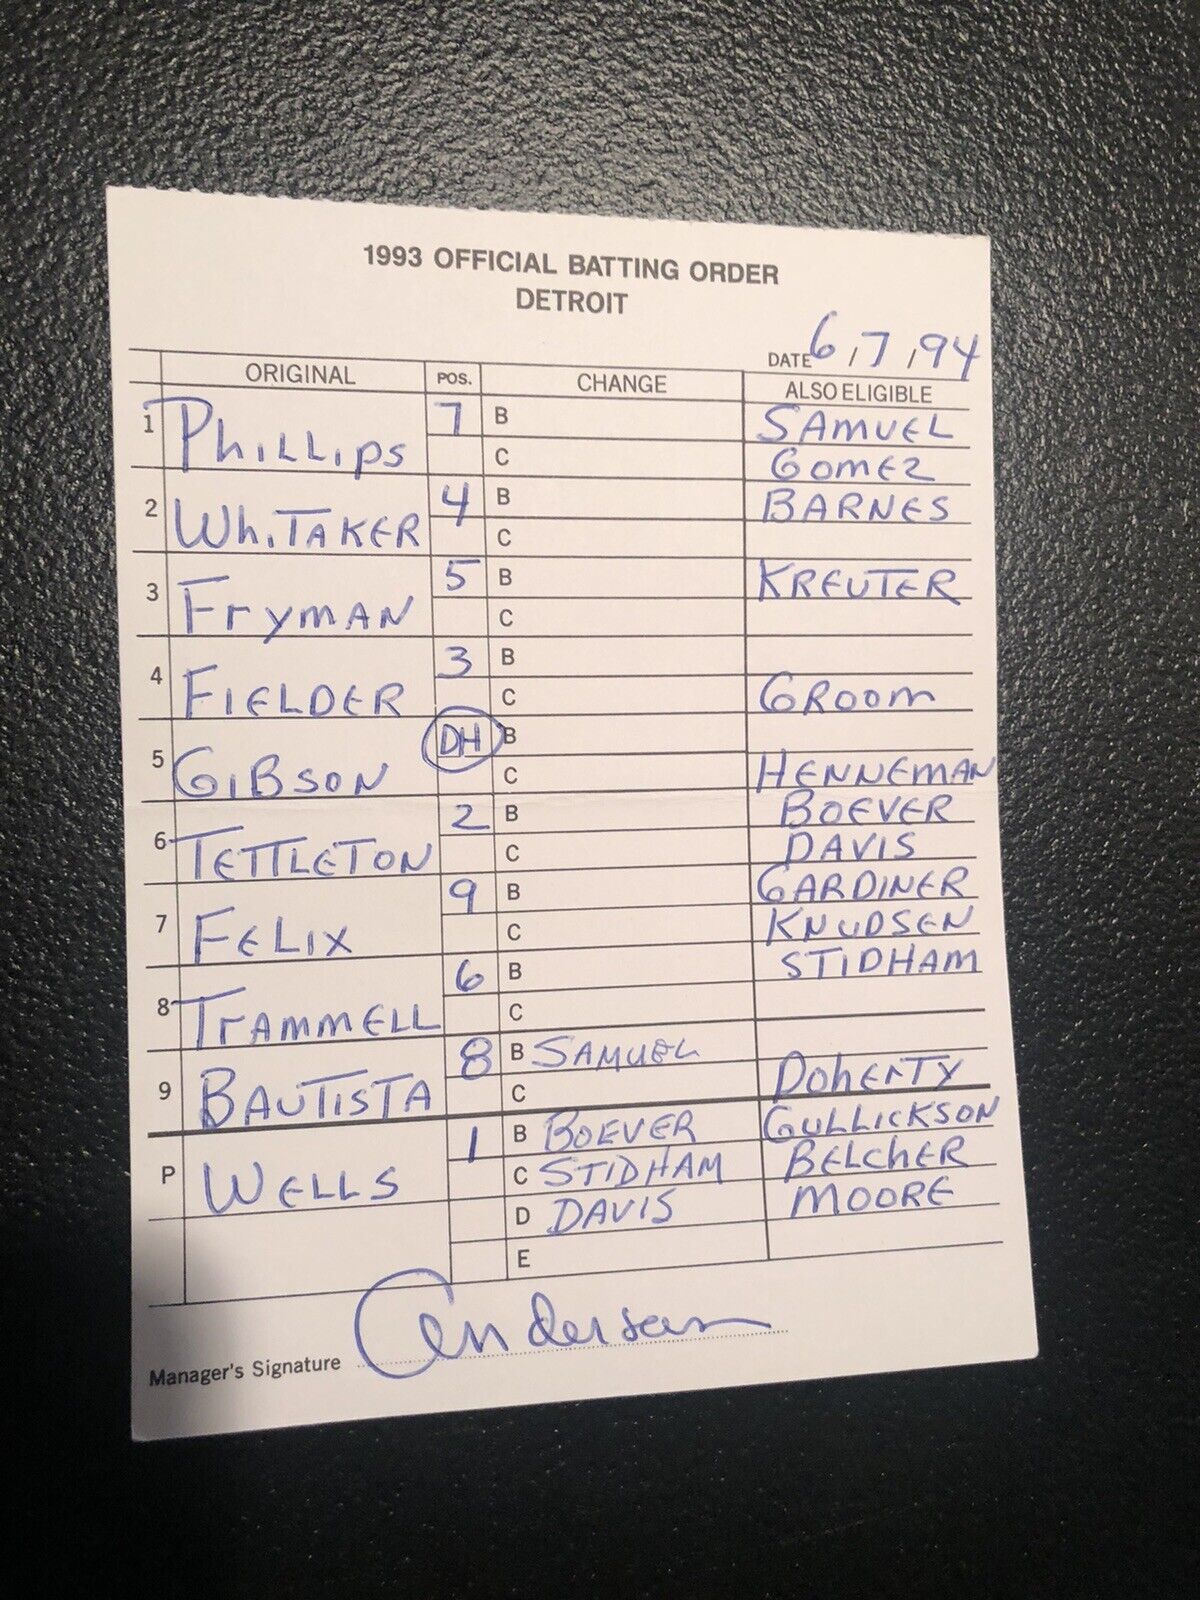 1993 OFFICIAL BATTING ORDER
DETROIT
DATE 6/7/94
ORIGINAL POS. CHANGE ALSO ELIGIBLE
1 Phillips 7 B SAMUEL
C GOMEZ
2 WhiTAKER 4 B BARNES
C
3 FrymAN 5 B KREUTER
C
4 FIELDER 3 B
C GROOM
5 GIBSON DH B
C HENNEMAN
6 TETTLETON 2 B BOEVER
C DAVIS
7 FELIX 9 B GARDINER
C KNUDSEN
8 TrAMMELL 6 B STIDHAM
C
9 BAUTISTA 8 B SAMUEL
C DOhERTY
P WELLS 1 B BOEVER GULLICKSON
C STIDHAM BELChER
D DAVIS MOORE
E
Manager's Signature Anderson